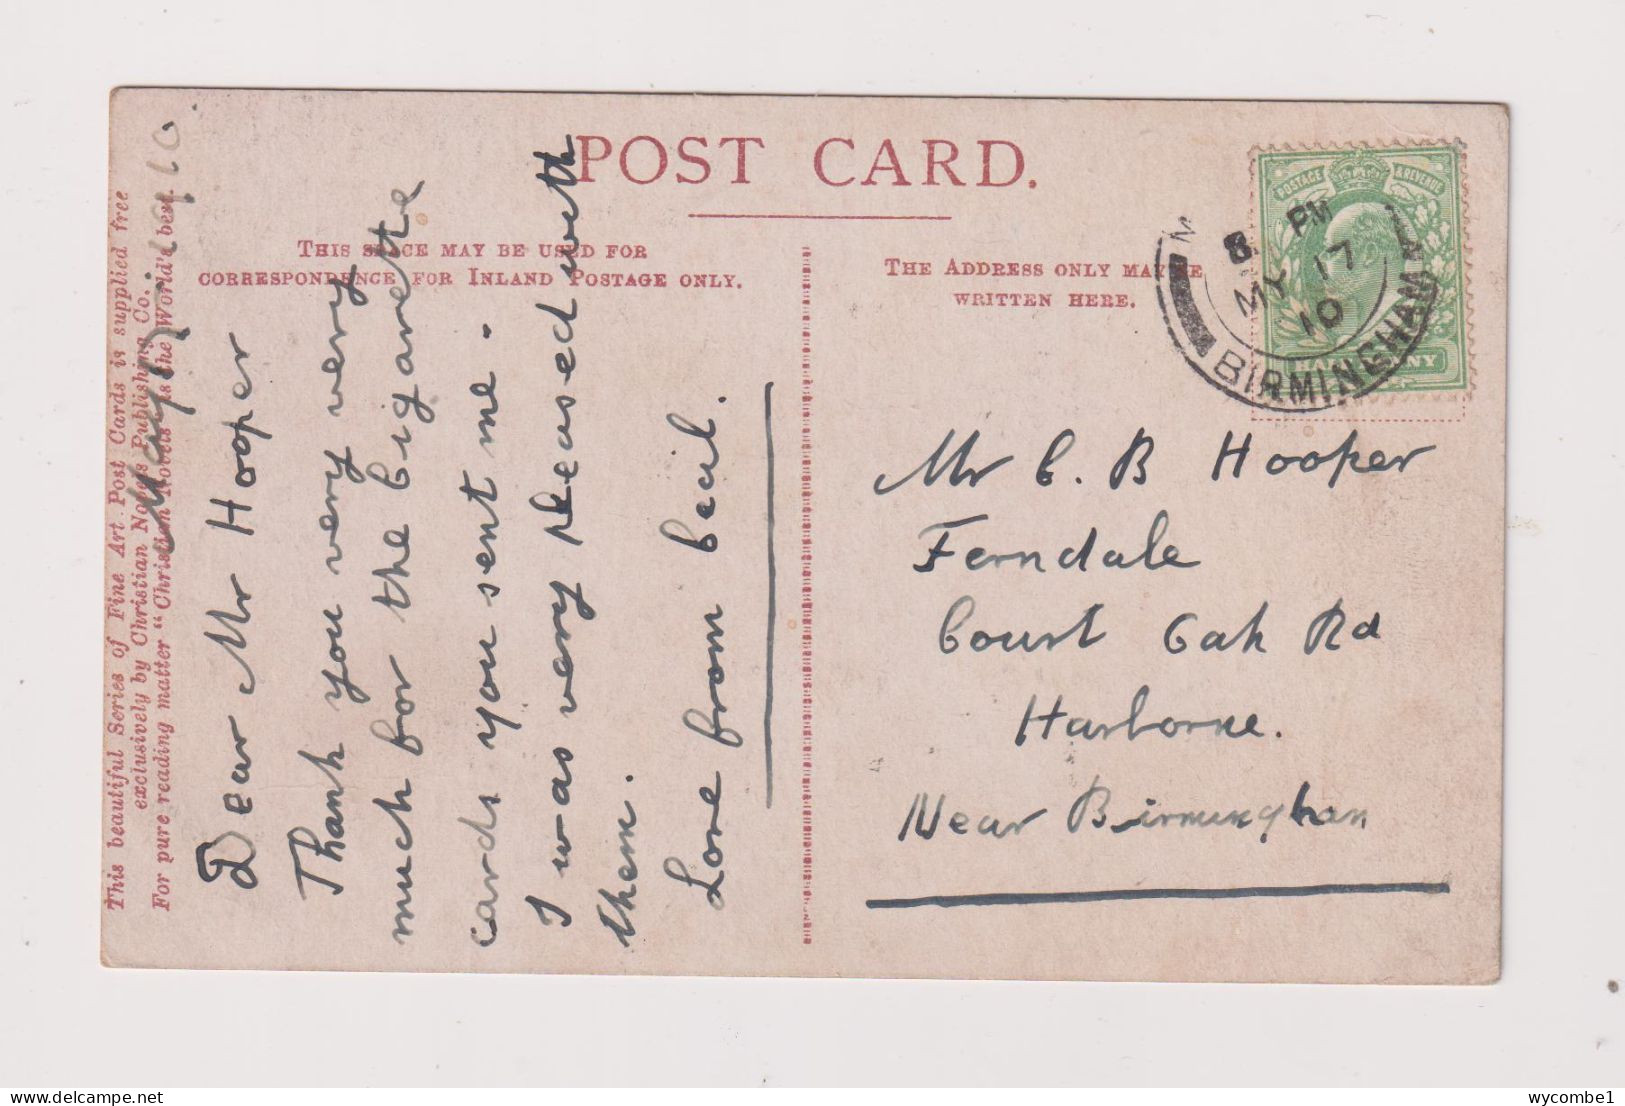 POST CARD.
THIS SPACE MAY BE USED FOR
CORRESPONDENCE FOR INLAND POSTAGE ONLY.
THE ADDRESS ONLY MAY BE
WRITTEN HERE.
This beautiful Series of Fine Art Post Cards is supplied free
exclusively by Christian Novels Publishing Co.
For pure reading matter "Christian Novels" is the World's best.
May 1910.
Dear Mr Hooper
Thank you very very
much for the cigarette
cards you sent me.
I was very pleased with
them.
Love from Cecil.
POSTAGE & REVENUE
8 PM
MY 17
10
BIRMINGHAM
Mr C. B Hooper
Ferndale
Court Oak Rd
Harborne.
Near Birmingham
wycombe1